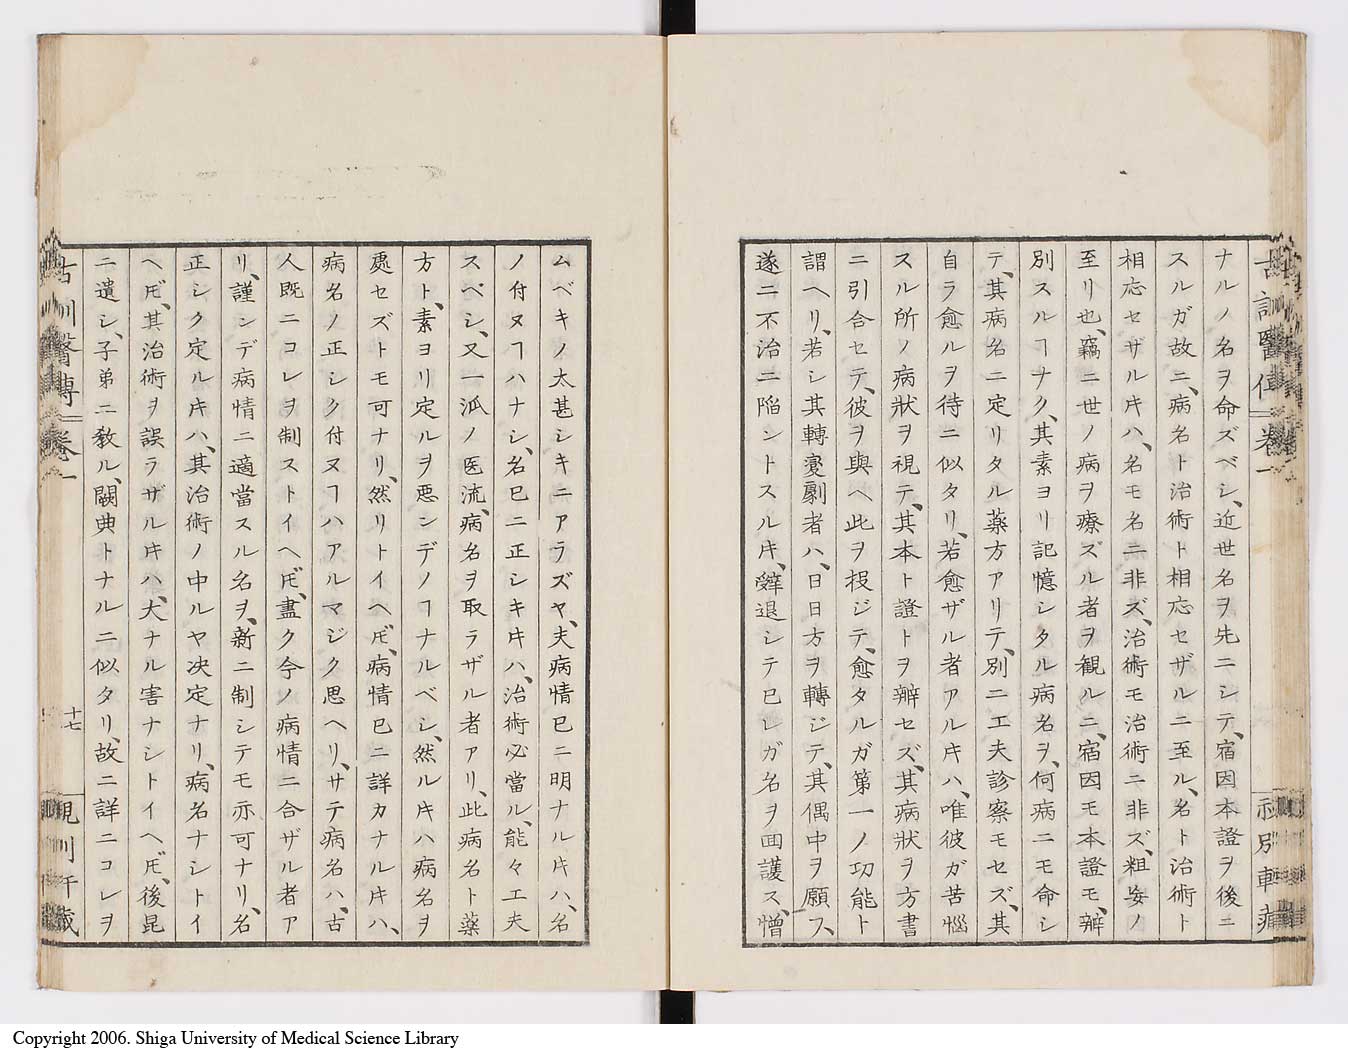 古訓醫傳 卷一
ナルノ名ヲ命ズベシ、近世名ヲ先ニシテ、宿因本證ヲ後ニ
スルガ故ニ、病名ト治術ト相応セザルニ至ル、名ト治術ト
相応セザルキハ、名モ名ニ非ズ、治術モ治術ニ非ズ、粗妄ノ
至リ也、竊ニ世ノ病ヲ療ズル者ヲ観ルニ、宿因モ本證モ、辨
別スルヿナク、其素ヨリ記憶シタル病名ヲ、何病ニモ命シ
テ、其病名ニ定リタル薬方アリテ、別ニ工夫診察モセズ、其
自ラ愈ルヲ待ニ似タリ、若愈ザル者アルキハ、唯彼ガ苦惱
スル所ノ病狀ヲ視テ、其本ト證トヲ辨セズ、其病狀ヲ方書
ニ引合セテ、彼ヲ與ヘ此ヲ投ジテ、愈タルガ第一ノ功能ト
謂ヘリ、若シ其轉変劇者ハ、日日方ヲ轉ジテ、其偶中ヲ願フ、
遂ニ不治ニ陥ントスルキ、辭退シテ已レガ名ヲ回護ス、憎
ムベキノ太甚シキニアラズヤ、夫病情已ニ明ナルキハ、名
ノ付ヌヿハナシ、名已ニ正シキキハ、治術必當ル、能々工夫
スベシ、又一派ノ医流、病名ヲ取ラザル者アリ、此病名ト藥
方ト、素ヨリ定ルヲ悪ンデノヿナルベシ、然ルキハ病名ヲ
處セズトモ可ナリ、然リトイヘ𪜈、病情已ニ詳カナルキハ、
病名ノ正シク付ヌヿハアルマジク思ヘリ、サテ病名ハ、古
人既ニコレヲ制ストイヘ𪜈、盡ク今ノ病情ニ合ザル者ア
リ、謹ンデ病情ニ適當スル名ヲ、新ニ制シテモ亦可ナリ、名
正シク定ルキハ、其治術ノ中ルヤ决定ナリ、病名ナシトイ
ヘ𪜈、其治術ヲ誤ラザルキハ、大ナル害ナシトイヘ𪜈、後昆
ニ遺シ、子弟ニ教ル、闕典トナルニ似タリ、故ニ詳ニコレヲ
古訓醫傳 卷一
十七
Copyright 2006. Shiga University of Medical Science Library